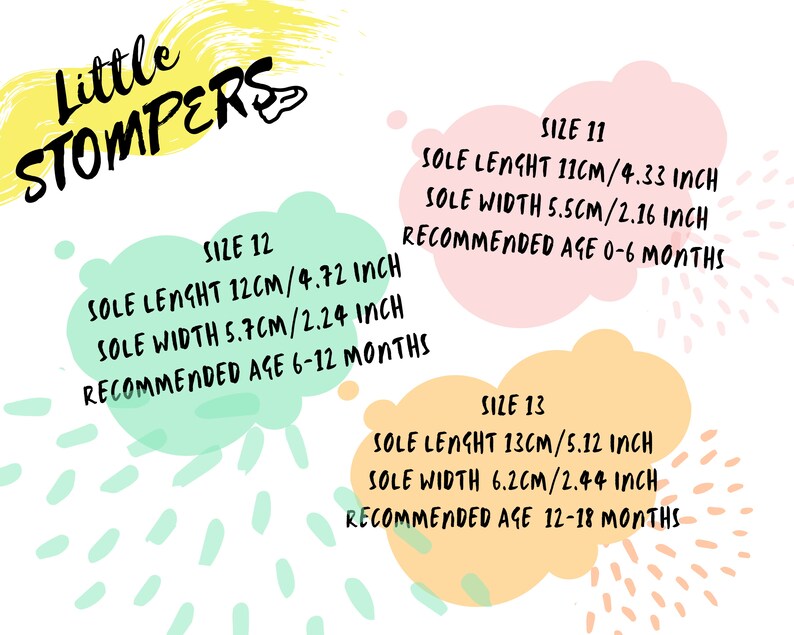 Little
STOMPERS
SIZE 11
SOLE LENGHT 11CM/4.33 INCH
SOLE WIDTH 5.5CM/2.16 INCH
RECOMMENDED AGE 0-6 MONTHS
SIZE 12
SOLE LENGHT 12CM/4.72 INCH
SOLE WIDTH 5.7CM/2.24 INCH
RECOMMENDED AGE 6-12 MONTHS
SIZE 13
SOLE LENGHT 13CM/5.12 INCH
SOLE WIDTH 6.2CM/2.44 INCH
RECOMMENDED AGE 12-18 MONTHS